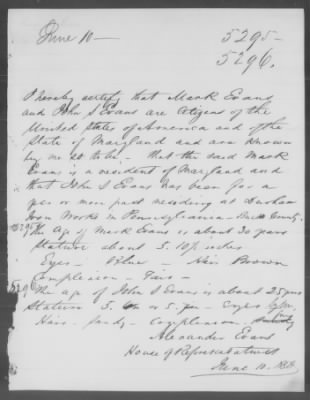 June 10 —
5295 -
5296.
I hereby certify that Mark Evans
and John S Evans are citizens of the
United States of America and of the
State of Maryland and are known
by me as to be. - that the said Mark
Evans is a resident of Maryland and
that John S Evans has been for a
year or more past residing at Durham
Iron Works in Pennsylvania - Bucks County.
5295 The age of Mark Evans is about 30 years
Stature about 5. 10 1/2 inches
Eyes - Blue - Hair Brown
Complexion - Fair -
5296 The age of John S Evans is about 25 years
Stature 5. or 5. - Eyes
Hair - Sandy - complexion
Alexander Evans
House of Representatives
June 10.